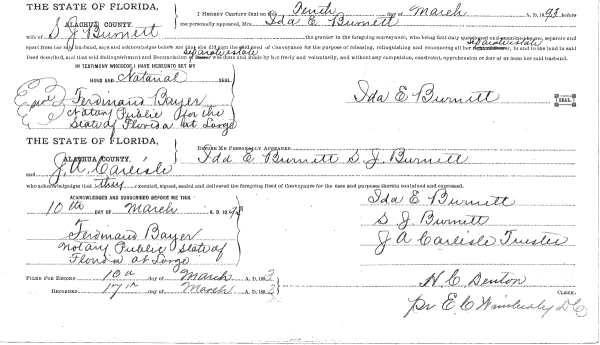 THE STATE OF FLORIDA,
ALACHUA COUNTY.
I HEREBY CERTIFY that on this Tenth day of March A. D. 1893 before
me personally appeared, Mrs. Ida E. Burnett
wife of S J Burnett the grantor in the foregoing conveyance, who being first duly questioned and examined by me, separate and
apart from her said husband, says and acknowledges before me that she did sign the said Deed of Conveyance for the purpose of releasing, relinquishing and renouncing all her Separate estate in and to the land in said
Deed described, and that said Relinquishment and Renunciation of Separate estate was done and made by her freely and voluntarily, and without any compulsion, constraint, apprehension or fear of or from her said husband.
IN TESTIMONY WHEREOF, I HAVE HEREUNTO SET MY
HAND AND Notarial SEAL
Ferdinand Bayer
Notary Public for the
State of Florida at Large
Ida E Burnett SEAL
THE STATE OF FLORIDA,
ALACHUA COUNTY.
BEFORE ME PERSONALLY APPEARED Ida E Burnett S. J. Burnett
and J. A. Carlisle
who acknowledges that they executed, signed, sealed and delivered the foregoing Deed of Conveyance for the uses and purposes therein contained and expressed.
ACKNOWLEDGED AND SUBSCRIBED BEFORE ME THIS
10th DAY OF March A. D. 1893
Ferdinand Bayer
Notary Public State of
Florida at Large
Ida E Burnett
S J Burnett
J A Carlisle Trustee
FILED FOR RECORD 10th day of March A. D. 1893
RECORDED 17th day of March A. D. 1893
H. C. Denton
CLERK.
per E. C. Wimberly D C